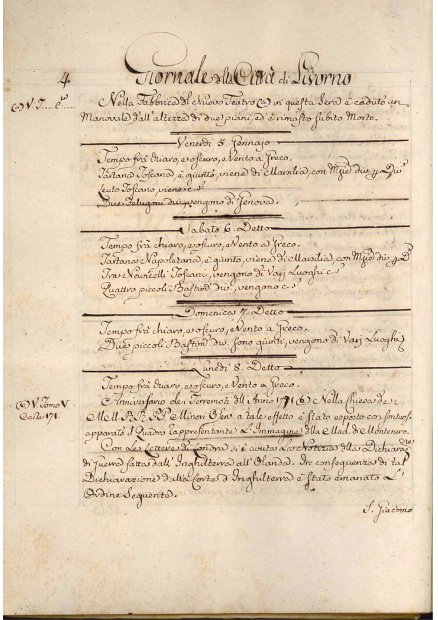 4 Giornale della Città di Livorno
Nella Fabbrica del Nuovo Teatro (a) in questa Sera è caduto un
Manovale dall'altezza di due piani, ed è rimasto subito Morto.
Venerdì 5 Gennajo
Tempo frà chiaro, e oscuro, e Vento a Greco.
Tartana Toscana è giunta, viene di Marsilia, con
Leuto Toscano, viene
Due Felughe vengono di Genova.
Sabato 6 Detto
Tempo frà chiaro, e oscuro, Vento a Greco.
Tartana Napoletana è giunta, viene di Marsilia, con
Tre Navicelli Toscani, vengono da Varj Luoghi
Quattro piccoli Bastim. vengono
Domenica 7 Detto
Tempo frà chiaro, e oscuro, Vento a Greco.
Due piccoli Bastim. sono giunti, vengono di Varj Luoghi
Lunedì 8 Detto
Tempo frà chiaro, e oscuro, e Vento a Greco.
(b) V. Tomo V
Carte 171.
Anniversario dei Terremoti dell'Anno (b) Nella Chiesa de
a tale effetto è stato esposto con sontuoso
apparato il Quadro rappresentante L'Immagine della Mad. di Montenero.
Con Le Lettere di Londra si è avuta La Notizia della
di Guerra fatta dall'Inghilterra all'Olanda. In conseguenza di tal
Dichiarazione dalla Corte d'Inghilterra è Stato emanato L'
Ordine Seguente.
S. Giacomo